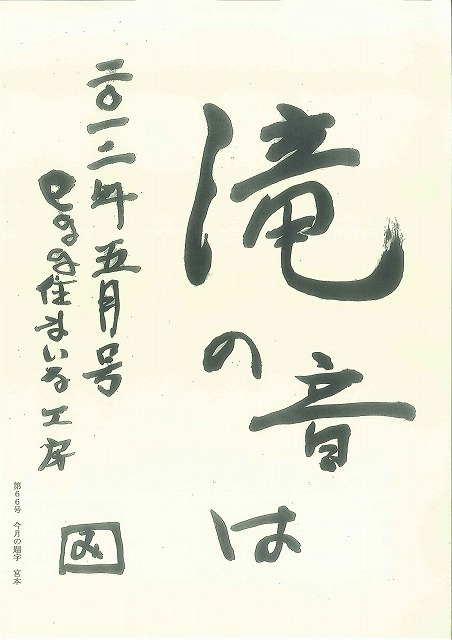 滝の音は
二〇一二年五月号
egg住まいる工房
み
第66号　今月の題字　宮本